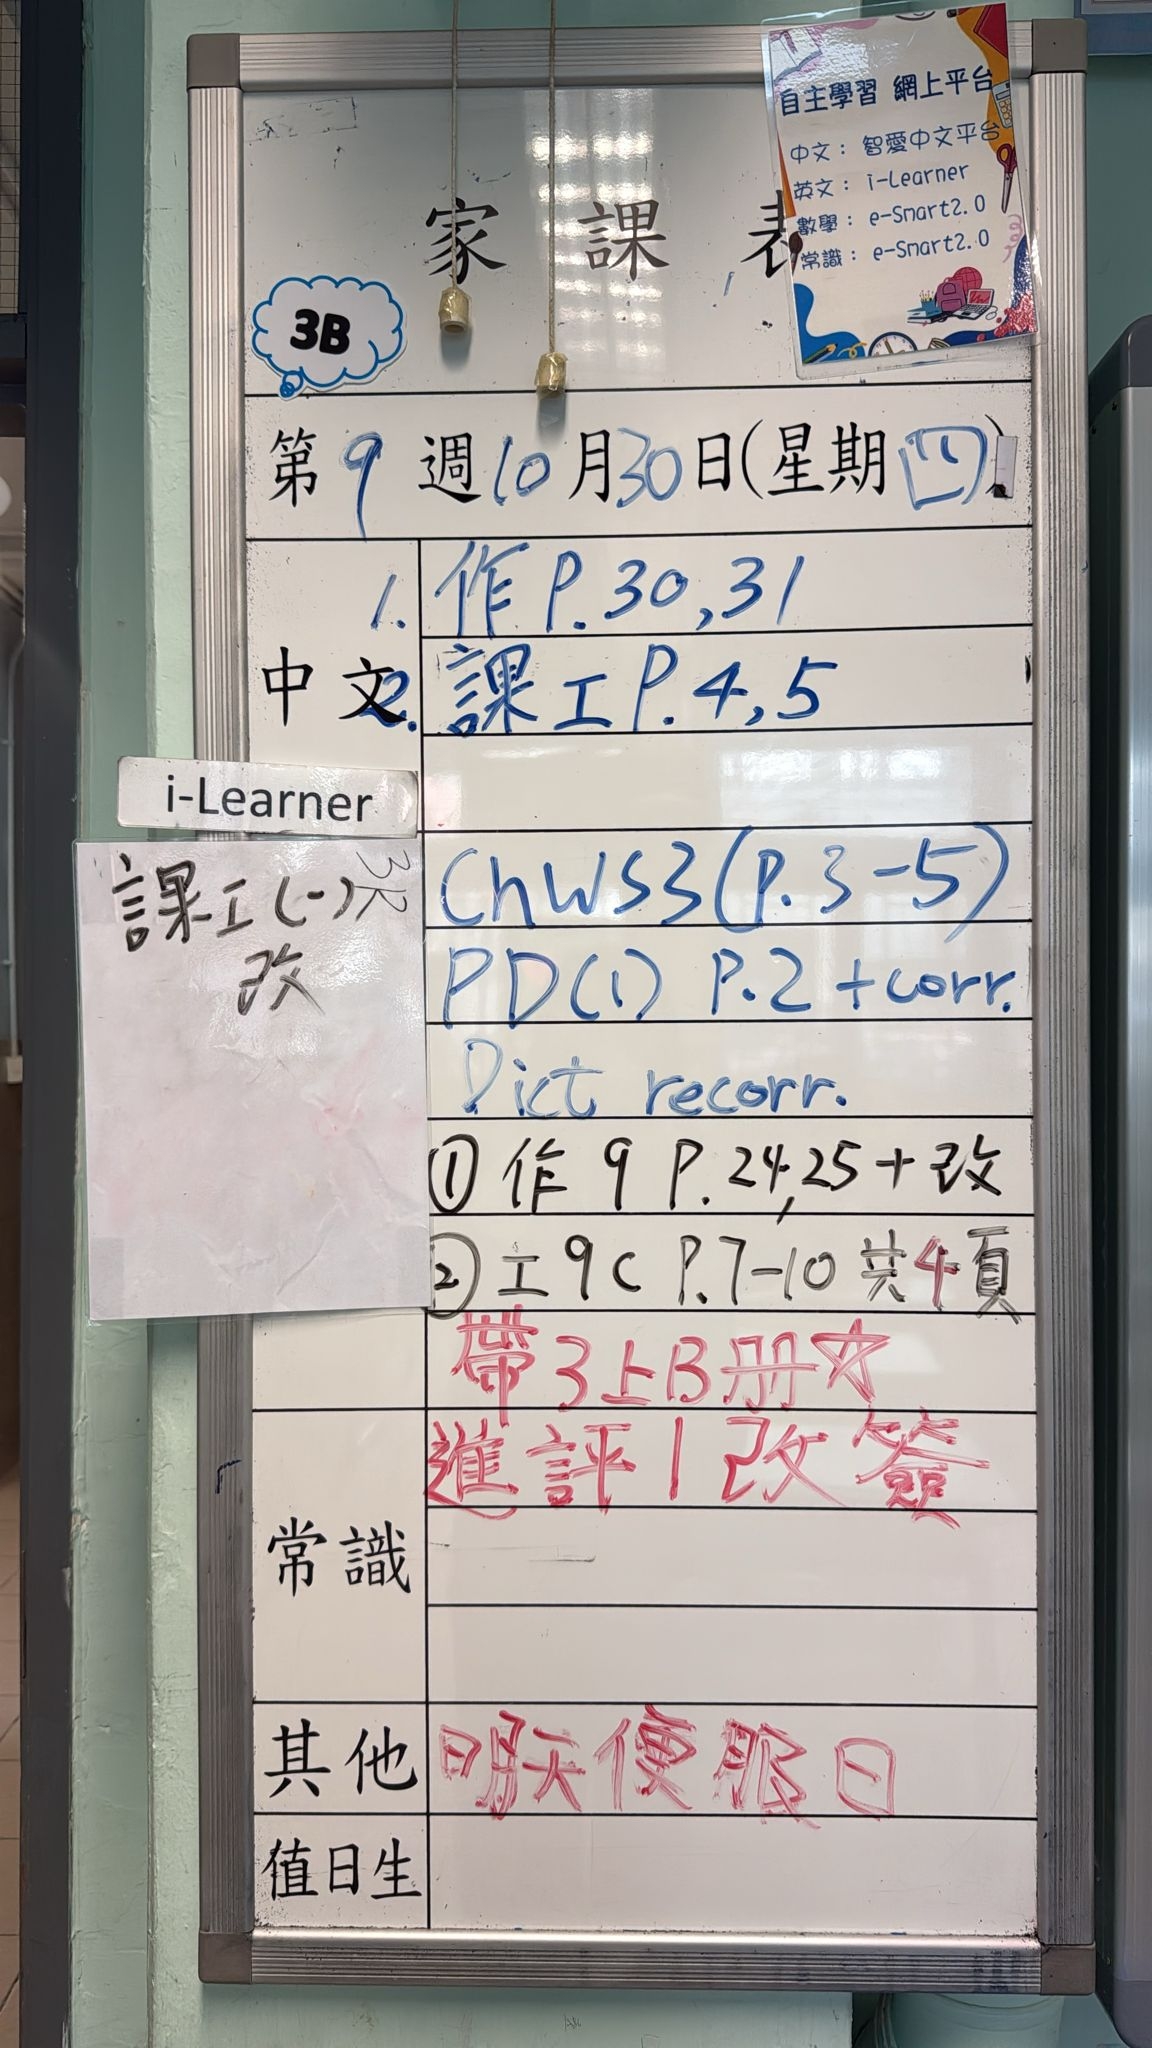 自主學習 網上平台
中文： 智愛中文平台
英文： i-Learner
數學： e-Smart2.0
常識： e-Smart2.0
家課表
3B
第9週10月30日(星期四)
中文
1. 作P.30,31
2. 課工P.4,5
i-Learner
課工(一)
改
ChWS3(P.3-5)
PD(1) P.2+corr.
Dict recorr.
① 作9 P.24,25+改
② 工9C P.7-10 共4頁
帶3上B册☆
常識
進評1改簽
其他
明天便服日
值日生